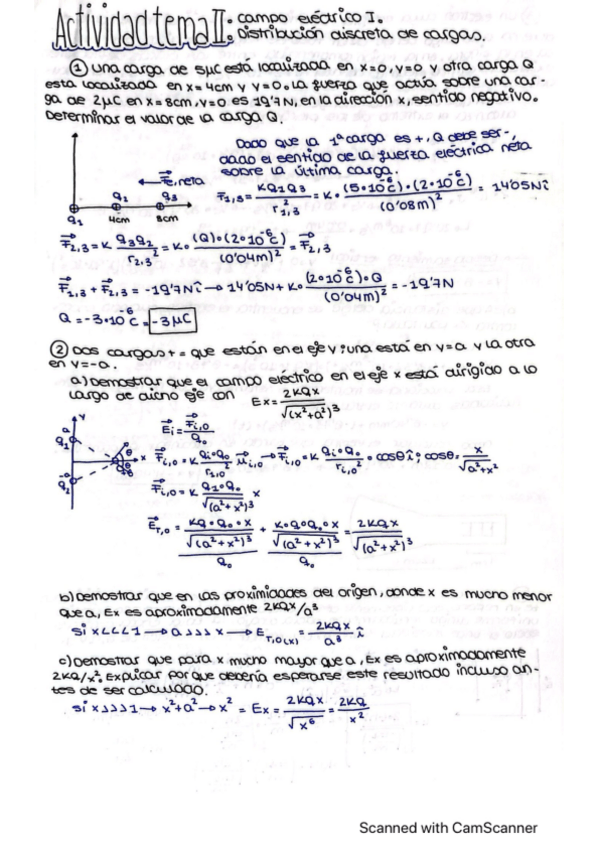 Actividad tema II: campo eléctrico I.
Distribución discreta de cargas.
① Una carga de 5μC está localizada en x=0, y=0 y otra carga Q
está localizada en x=4cm y y=0. La fuerza que actúa sobre una car-
ga de 2μC en x=8cm, y=0 es 19'7N, en la dirección x, sentido negativo.
Determinar el valor de la carga Q.
Dado que la 1ª carga es +, Q debe ser -,
dado el sentido de la fuerza eléctrica neta
sobre la última carga.
F e, neta
q₁ q₂ q₃
4cm 8cm
F₁,₃ = KQ₁Q₃/r²₁,₃ = K·(5·10⁻⁶C)·(2·10⁻⁶C)/(0'08m)² = 14'05N î
F₂,₃ = K q₃q₂/r₂,₃² = K·(Q)·(2·10⁻⁶C)/(0'04m)² = F₂,₃
F₁,₃ + F₂,₃ = -19'7N î → 14'05N + K·(2·10⁻⁶C)·Q/(0'04m)² = -19'7N
Q = -3·10⁻⁶C = -3μC
② Dos cargas + = que están en el eje y: una está en y=a y la otra
en y=-a.
a) Demostrar que el campo eléctrico en el eje x está dirigido a lo
largo de dicho eje con Ex = 2KQx/√(x²+a²)³
y
a
q₁
-a
q₂
θ
θ
x
E i = F i,0/Q₀
F i,0 = K Qi·Q₀/r²i,0 μ i,0 → F i,0 = K Qi·Q₀/r i,0² · cosθ î; cosθ = x/√a²+x²
F i,0 = K Q₁·Q₀/√(a²+x²)³ x
E T,0 = (KQ·Q₀·x/√(a²+x²)³)/Q₀ + (K·Q·Q₀·x/√(a²+x²)³)/Q₀ = 2KQx/√(a²+x²)³
b) Demostrar que en las proximidades del origen, donde x es mucho menor
que a, Ex es aproximadamente 2KQx/a³
Si x<<<1 → a>>>x → E T,0(x) = 2KQx/a³ î
c) Demostrar que para x mucho mayor que a, Ex es aproximadamente
2KQ/x². Explicar por que debería esperarse este resultado incluso an-
tes de ser calculado.
Si x>>>1 → x²+a² → x² = Ex = 2KQx/√x⁶ = 2KQ/x²
Scanned with CamScanner